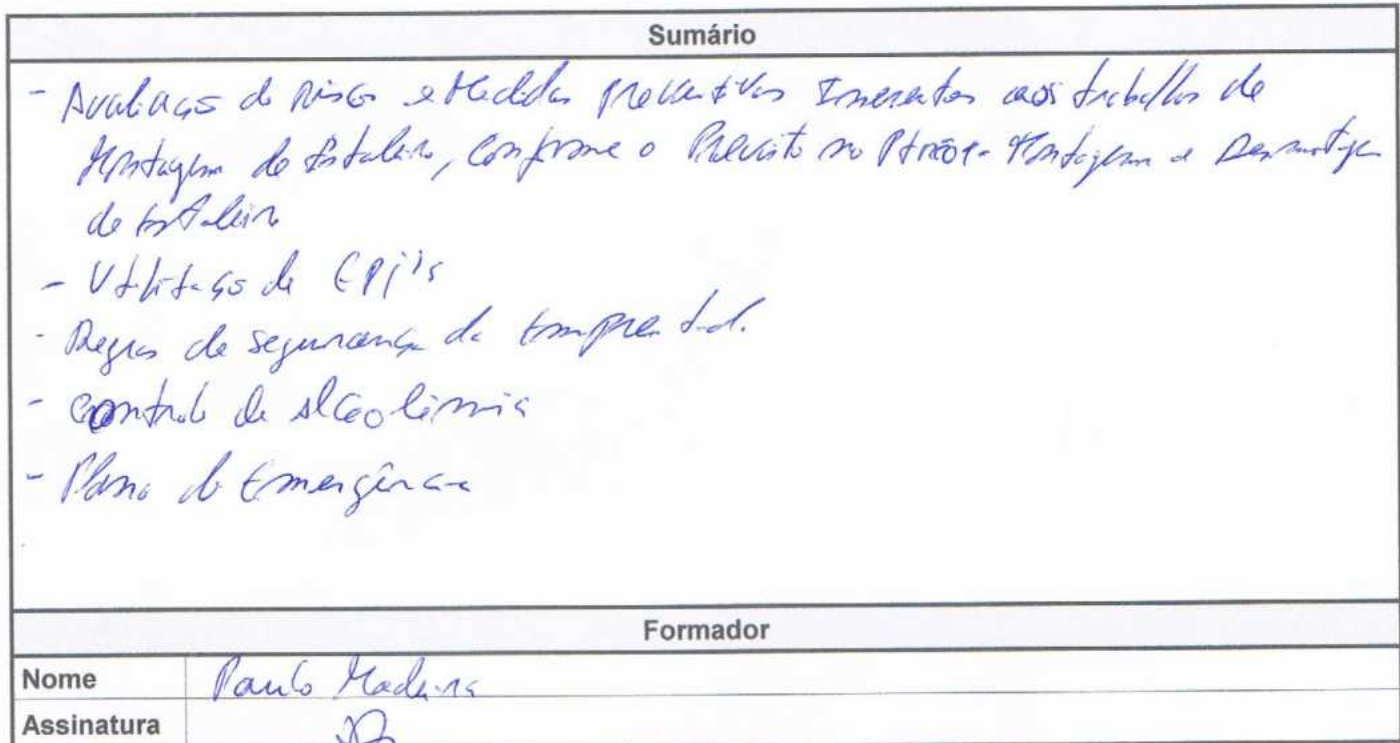 Sumário
- Avaliação de Riscos e Medidas preventivas Inerentes aos trabalhos de
Montagem do Estaleiro, conforme o Previsto no Montagem e Desmontagem
de Estaleiro
- Utilização de EPI's
- Regras de segurança da
- Controlo de alcoolémia
- Plano de Emergência
Formador
Nome Paulo Madeira
Assinatura